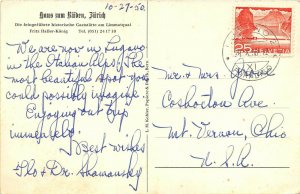 10-29-50.
Haus zum Rüden, Zürich
Die feingeführte historische Gaststätte am Limmatquai
Fritz Haller-König Tel. (051) 24 17 10
We are now in Lugano
in the Italian Alps. The
most beautiful spot you
could possibly imagine.
Enjoying our trip
immensely.
Best wishes
Flo & Dr. Shamansky
25
HELVETIA
XI
Mr. & Mrs.
Coshocton Ave.
Mt. Vernon, Ohio
U.S.A.